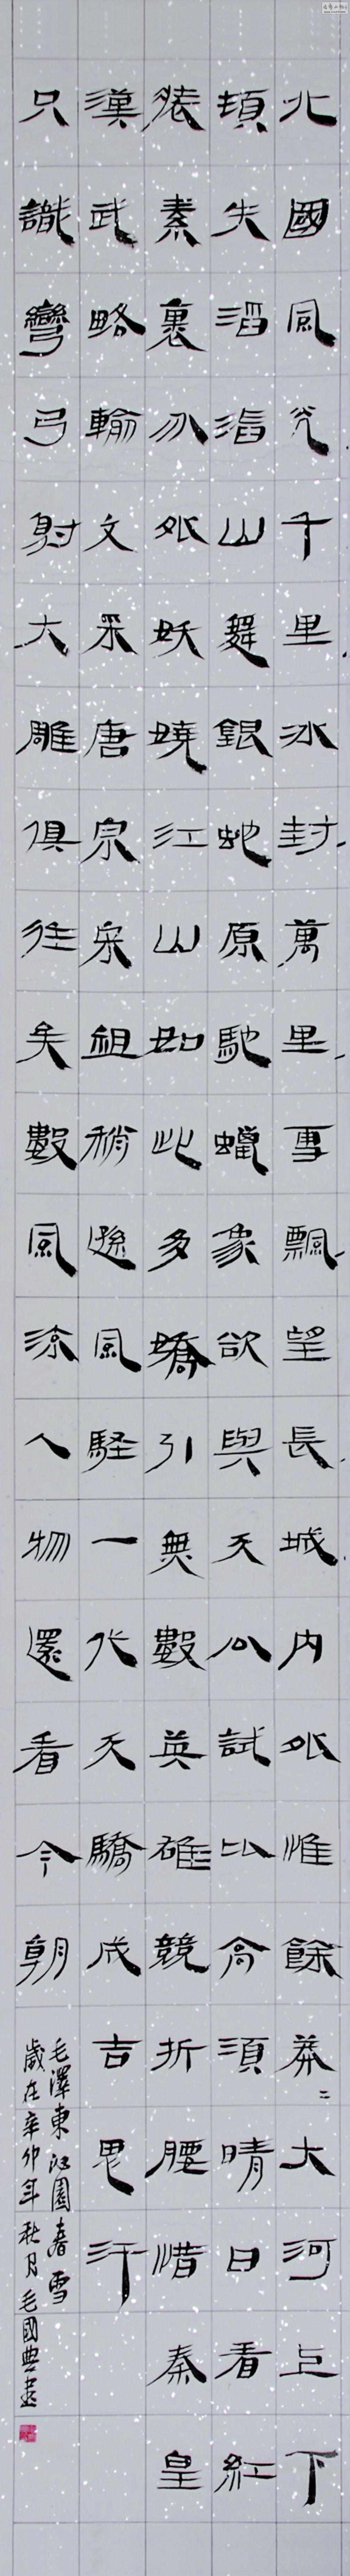 北國風光千里冰封萬里雪飄望長城内外惟餘莽〻大河上下
頓失滔滔山舞銀蛇原馳蠟象欲與天公試比高須晴日看紅
裝素裹分外妖嬈江山如此多嬌引無數英雄競折腰惜秦皇
漢武略輸文采唐宗宋祖稍遜風騷一代天驕成吉思汗
只識彎弓射大雕俱往矣數風流人物還看今朝
毛澤東沁園春雪
歲在辛卯年秋月毛國典書